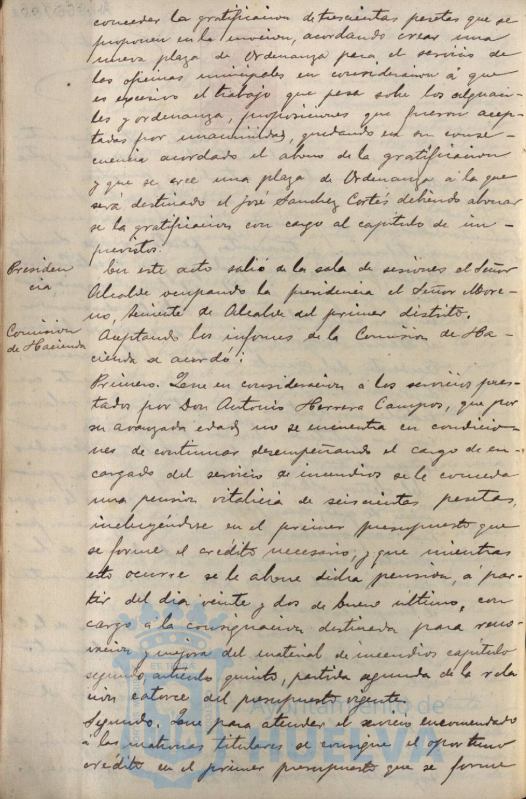 conceder la gratificacion de trescientas pesetas que se
proponen en la mocion, acordando crear una
nueva plaza de Ordenanza para el servicio de
las oficinas municipales en consideracion á que
es excesivo el trabajo que pesa sobre los alguaci-
les y ordenanza, proposiciones que fueron acep-
tadas por unanimidad, quedando en su conse-
cuencia acordado el abono de la gratificacion
y que se cree una plaza de Ordenanza á la que
será destinado el José Sanchez Cortés debiendo abonar
se la gratificacion con cargo al capítulo de im-
previstos.
Presiden
cia
En este acto salió de la sala de sesiones el Señor
Alcalde ocupando la presidencia el Señor More-
no, Teniente de Alcalde del primer distrito.
Comision
de Hacienda
Aceptando los informes de la Comision de Ha-
cienda se acordó:
Primero. Que en consideracion á los servicios pres-
tados por Don Antonio Herrera Campos, que por
su avanzada edad, no se encuentra en condicio-
nes de continuar desempeñando el cargo de en-
cargado del servicio de incendios se le conceda
una pension vitalicia de seiscientas pesetas,
incluyéndose en el primer presupuesto que
se forme el crédito necesario, y que mientras
esto ocurre se le abone dicha pension, á par-
tir del dia veinte y dos de Enero último, con
cargo á la consignacion destinada para reno-
vacion y mejora del material de incendios capítulo
segundo, artículo quinto, partida segunda de la rela
cion catorce del presupuesto vigente.
Segundo. Que para atender el servicio encomendado
á las matronas titulares se consigne el oportuno
crédito en el primer presupuesto que se forme
Ayuntamiento de
HUELVA